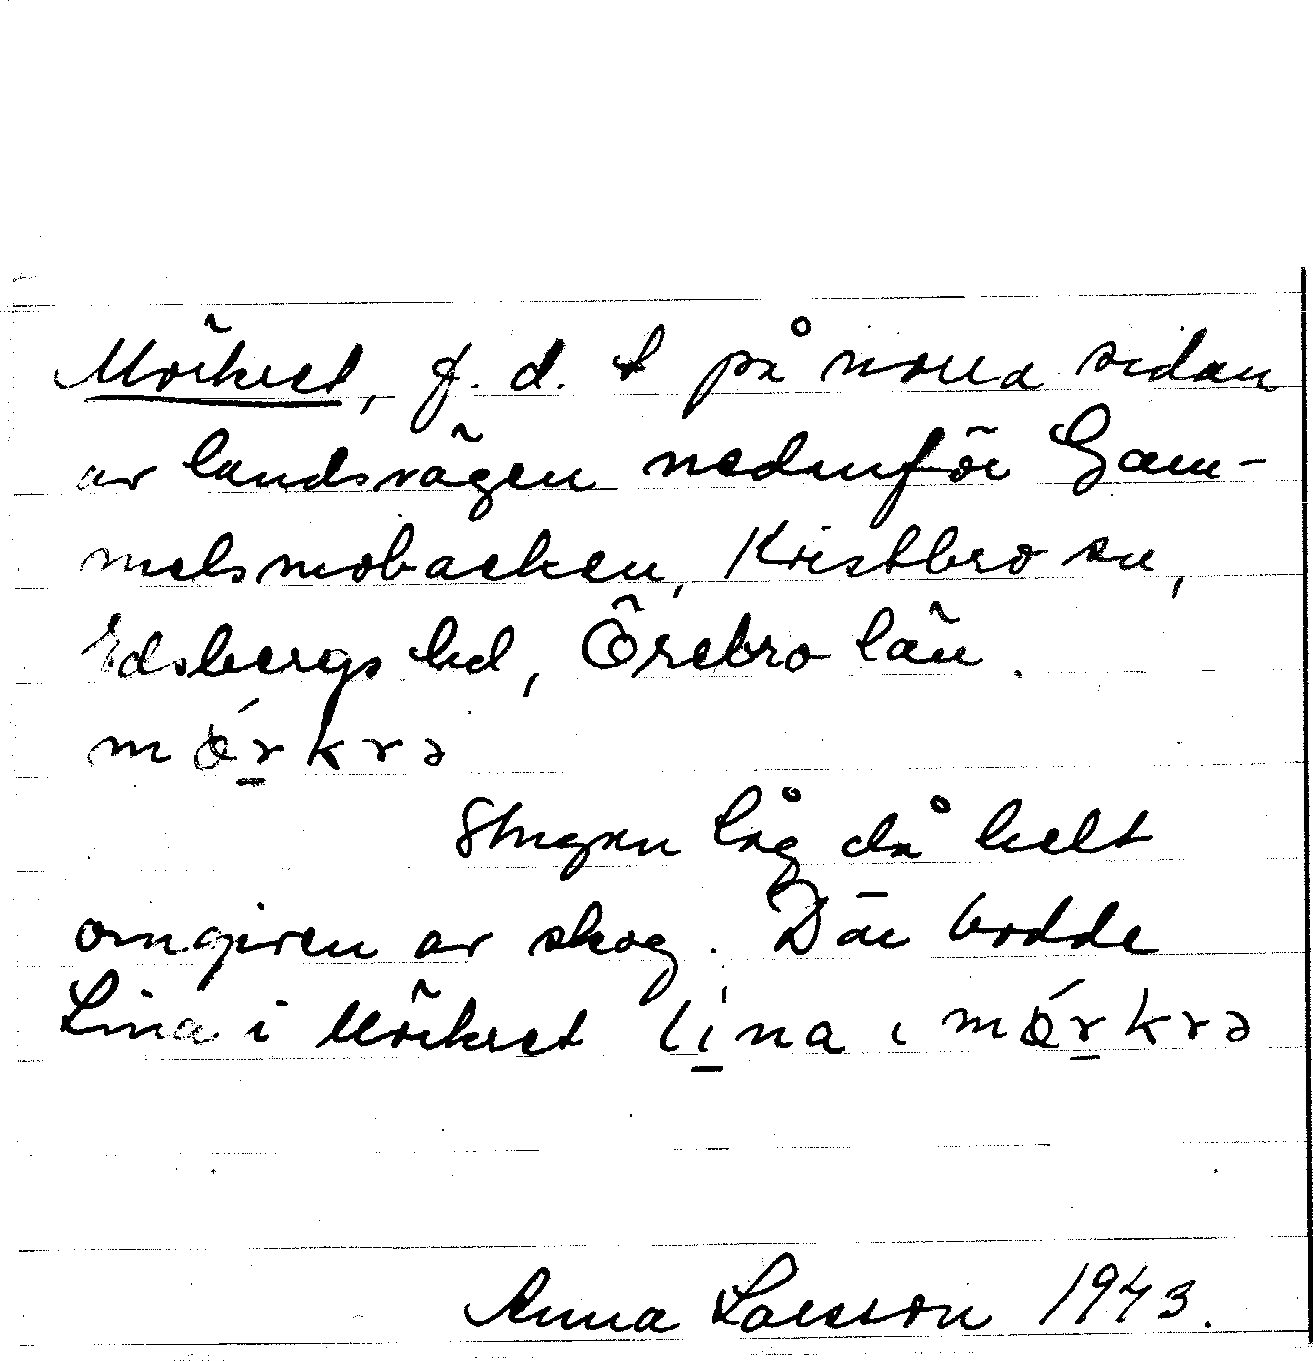 Mörkret, f. d. t på norra sidan
av landsvägen nedanför Gam-
melsmobacken, Kvistbro sn,
Edsbergs hd, Örebro län.
mǿr̲krə
Stugan låg då helt
omgiven av skog. Där bodde
Lina i Mörkret li̲na ι mǿr̲krə
Anna Larsson 1943.